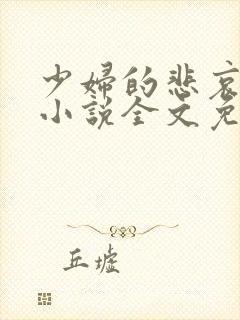 少婦的悲哀
小說全文免
丘墟